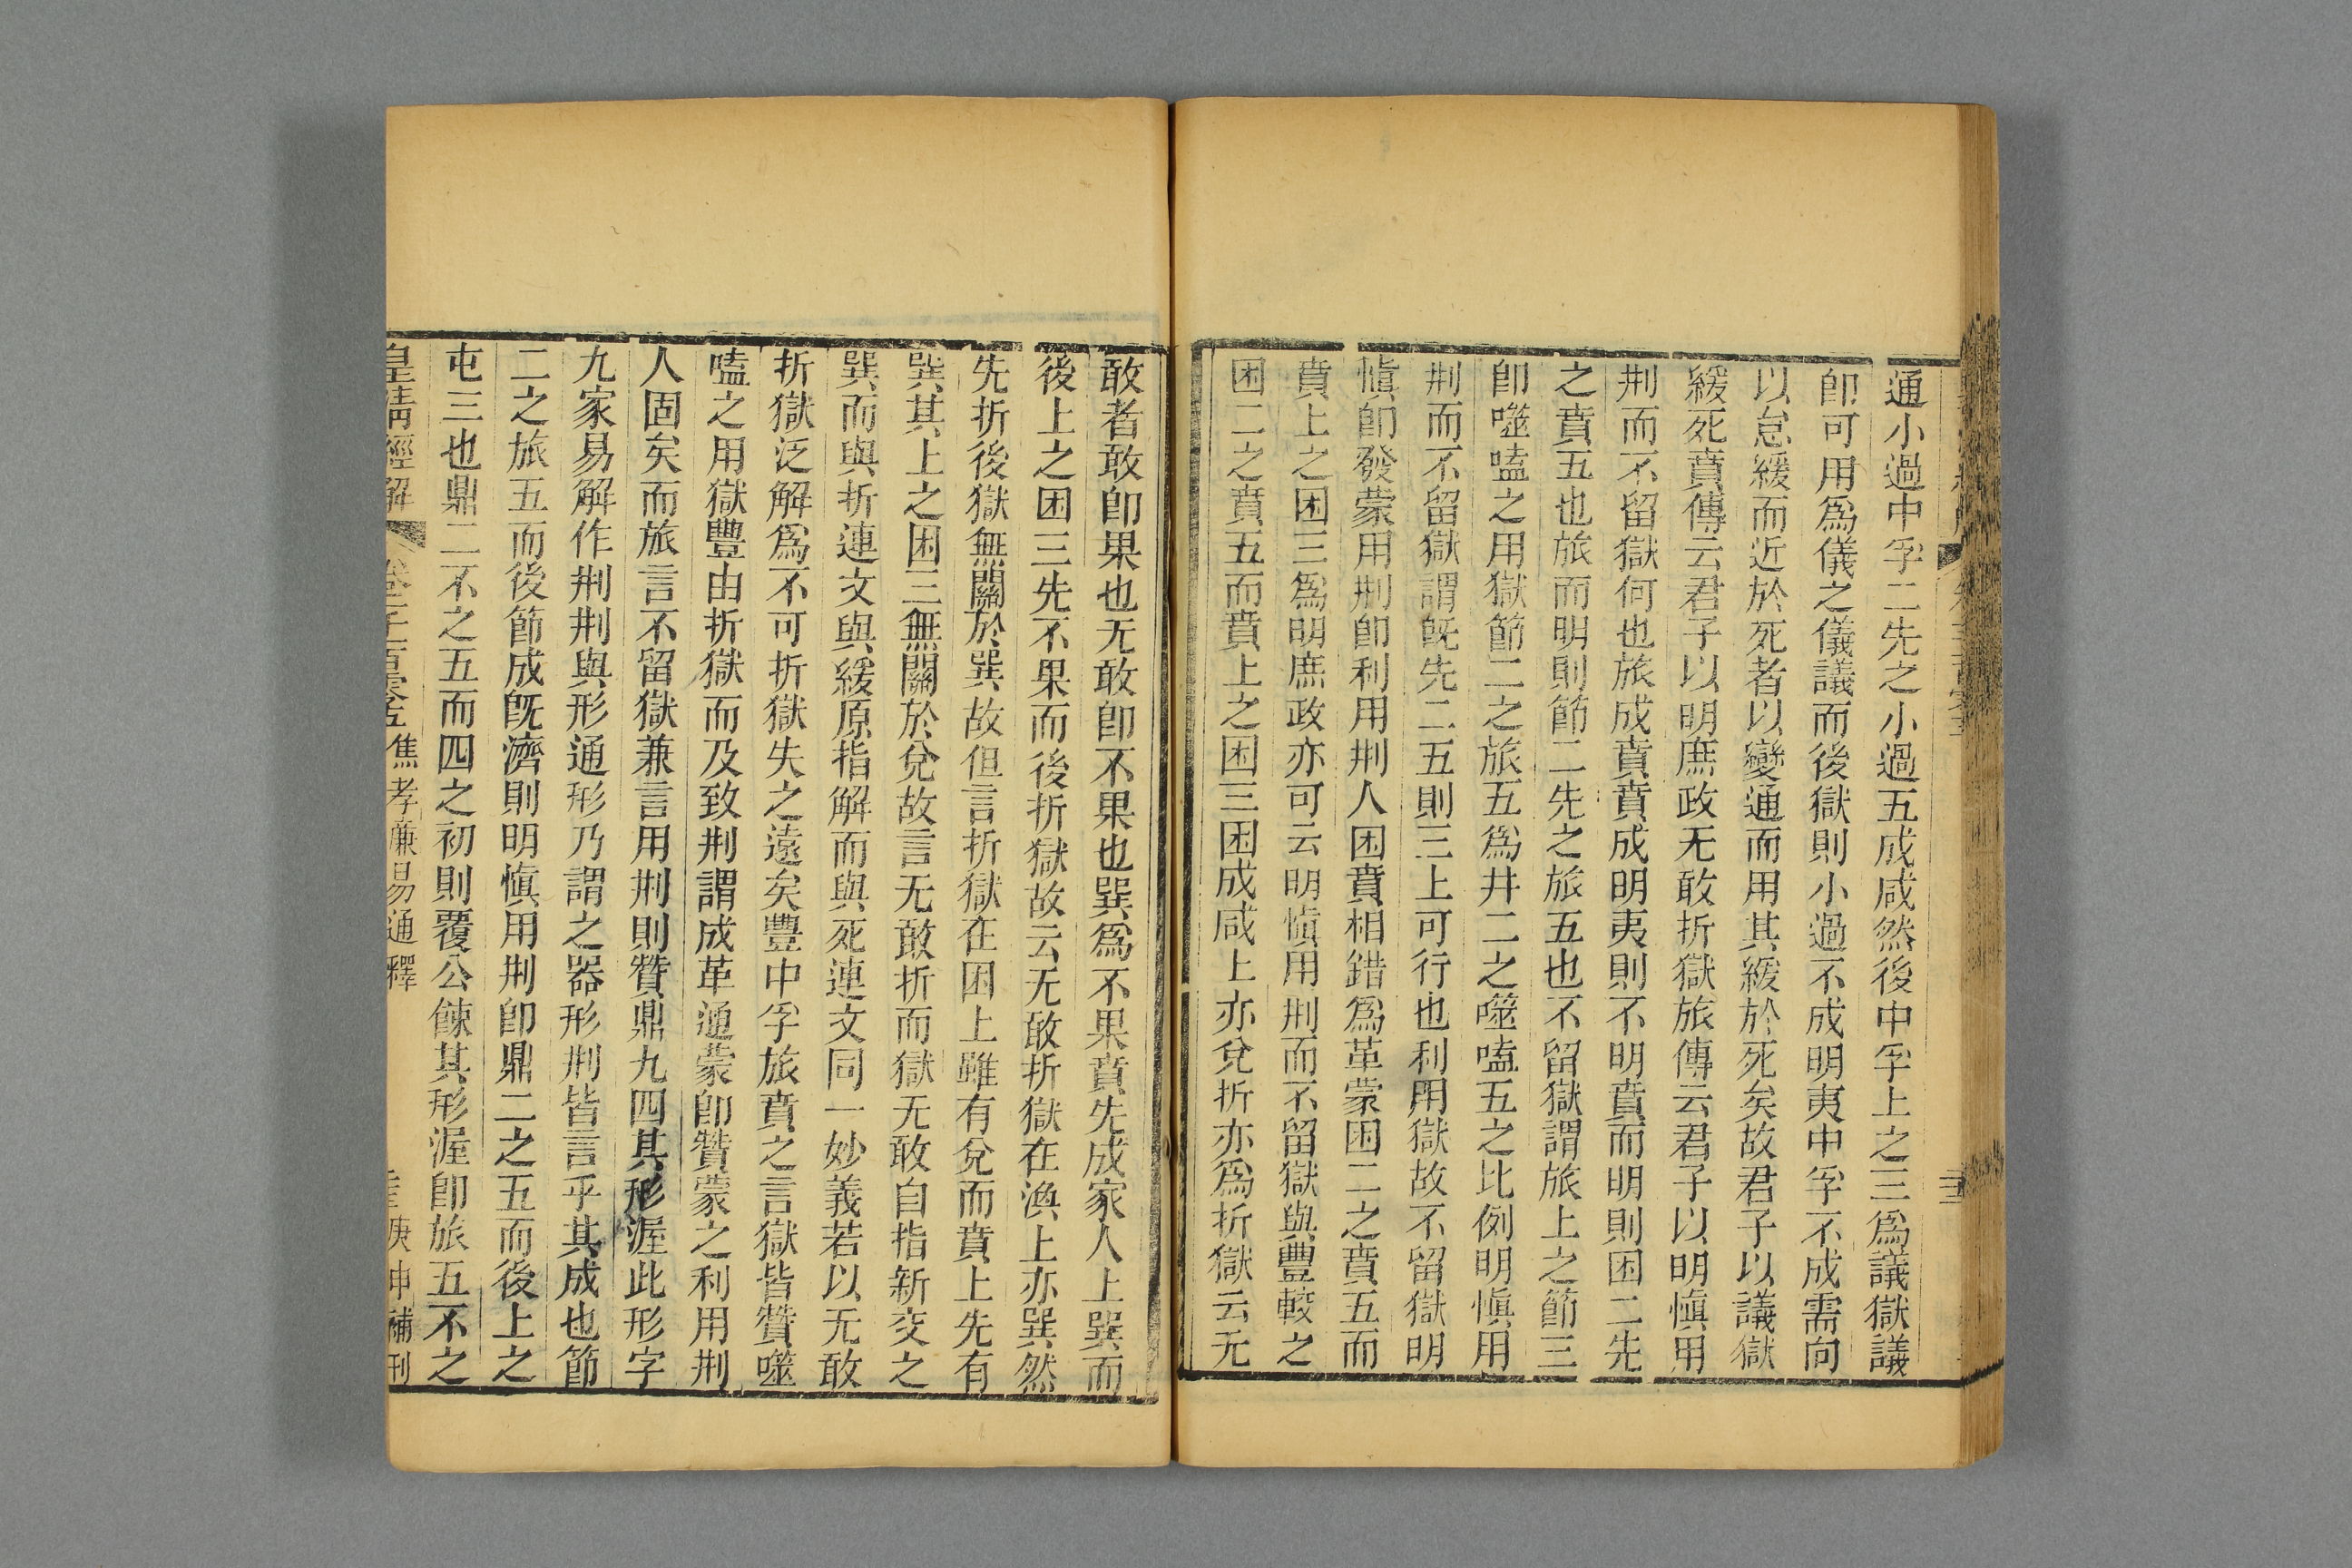 通小過中孚二先之小過五成咸然後中孚上之三爲議獄議
卽可用爲儀之儀議而後獄則小過不成明夷中孚不成需向
以怠緩而近於死者以變通而用其緩於死矣故君子以議獄
緩死賁傳云君子以明庶政无敢折獄旅傳云君子以明愼用
刑而不留獄何也旅成賁賁成明夷則不明賁而明則困二先
之賁五也旅而明則節二先之旅五也不留獄謂旅上之節三
卽噬嗑之用獄節二之旅五爲井二之噬嗑五之比例明愼用
刑而不留獄謂旣先二五則三上可行也利用獄故不留獄明
愼卽發蒙用刑卽利用刑人困賁相錯爲革蒙困二之賁五而
賁上之困三爲明庶政亦可云明愼用刑而不留獄與豐較之
困二之賁五而賁上之困三困成咸上亦兌折亦爲折獄云无
敢者敢卽果也无敢卽不果也巽爲不果賁先成家人上巽而
後上之困三先不果而後折獄故云无敢折獄在渙上亦巽然
先折後獄無關於巽故但言折獄在困上雖有兌而賁上先有
巽其上之困三無關於兌故言无敢折而獄无敢自指新交之
巽而與折連文與緩原指解而與死連文同一妙義若以无敢
折獄泛解爲不可折獄失之遠矣豐中孚旅賁之言獄皆贊噬
嗑之用獄豐由折獄而及致刑謂成革通蒙卽贊蒙之利用刑
人固矣而旅言不留獄兼言用刑則贊鼎九四其形渥此形字
九家易解作刑刑與形通形乃謂之器形刑皆言乎其成也節
二之旅五而後節成旣濟則明愼用刑卽鼎二之五而後上之
屯三也鼎二不之五而四之初則覆公餗其形渥卽旅五不之
皇淸經解 卷一千一百零五 焦孝廉易通釋 庚申補刊